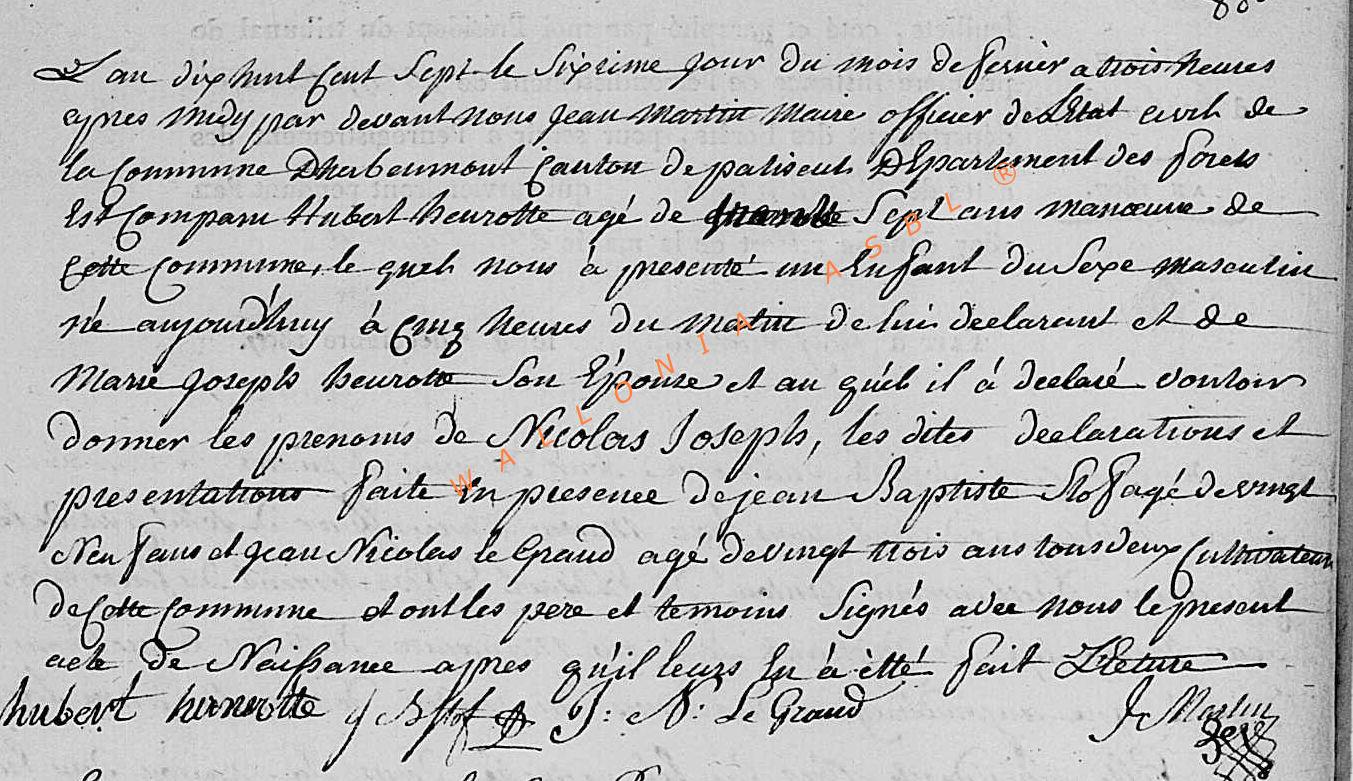 L'an dix huit cent Sept le Sixième jour du mois de fevrier a trois heures
apres midy par devant nous jean Martin Maire officier de L'Etat civil de
la Commune D'herbeumont Canton de paliseul Département des forets
Est Comparu Hubert henrotte agé de Sept ans manoeuvre de
Cette Commune, le quel nous à presenté un Enfant du Sexe masculin
né aujourd'huy à Cinq heures du Matin de lui declarant et de
Marie joseph henrotte Son Épouse et au quel il à declaré vouloir
donner les prenoms de Nicolas Joseph, les dites declarations et
presentations faite En presence de jean Baptiste Stof agé de vingt
Neuf ans et jean Nicolas le Grand agé de vingt trois ans tous deux Cultivateurs
de Cette Commune et ont les pere et temoins Signés avec nous le present
acte de Naissance apres qu'il leurs lu à étté fait Lecture
hubert henrotte J Bstof J: N: Le Grand J Martin
WALLONIA ASBL ®